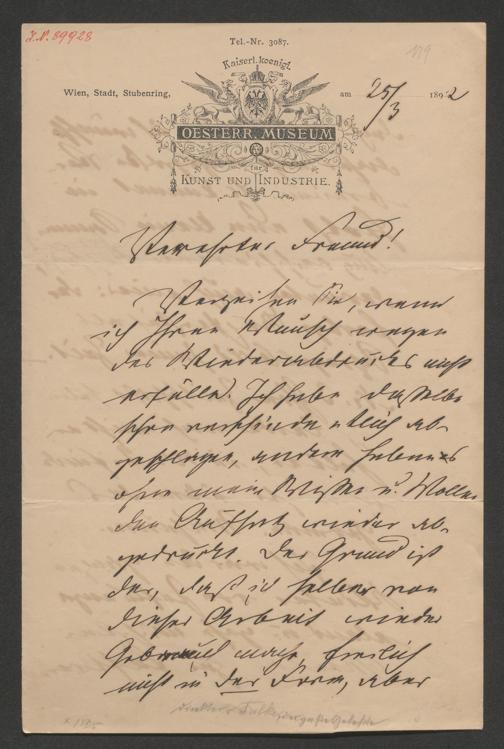 J.N. 89928
Tel.-Nr. 3087.
119
Kaiserl. koenigl.
Wien, Stadt, Stubenring, am 25/3 1892
OESTERR. MUSEUM
für
KUNST UND INDUSTRIE.
Verehrter Freund!
Verzeihen Sie, wenn
ich Ihren Wunsch wegen
des Wiederabdruckes nicht
erfülle. Ich habe dasselbe
schon verschiedentlich ab-
geschlagen, andere haben es
ohne mein Wissen u. Wollen
den Aufsatz wieder ab-
gedruckt. Der Grund ist
der, daß ich selber von
dieser Arbeit wieder
Gebrauch mache, freilich
nicht in der Form, aber